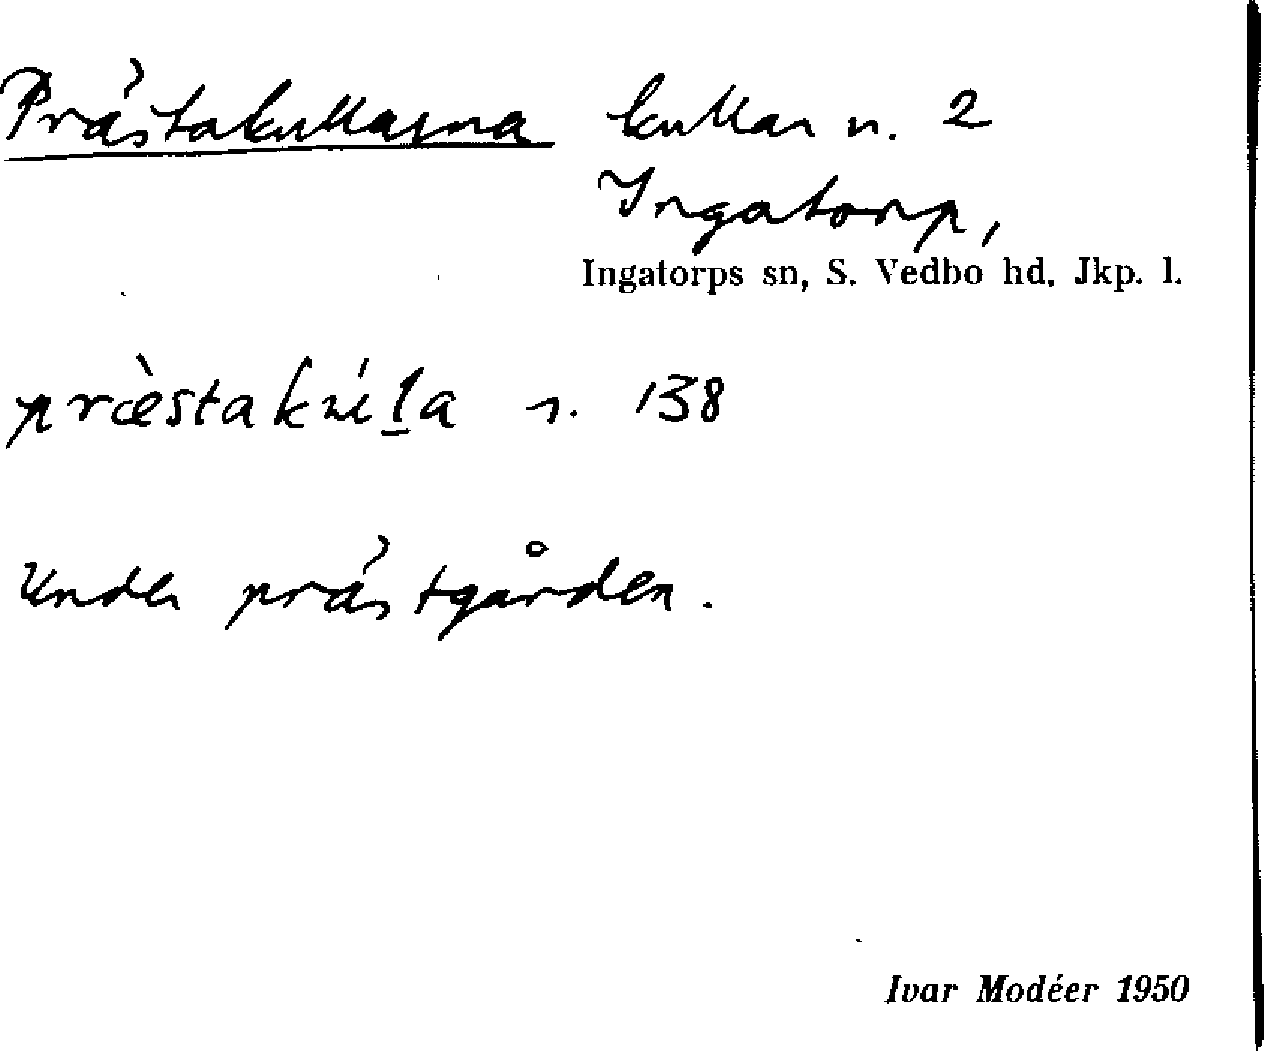 Prästakullarna kullar n. 2
Ingatorp,
Ingatorps sn, S. Vedbo hd, Jkp. l.
præ̀stakúl̲a n. 138
Under prästgården.
Ivar Modéer 1950